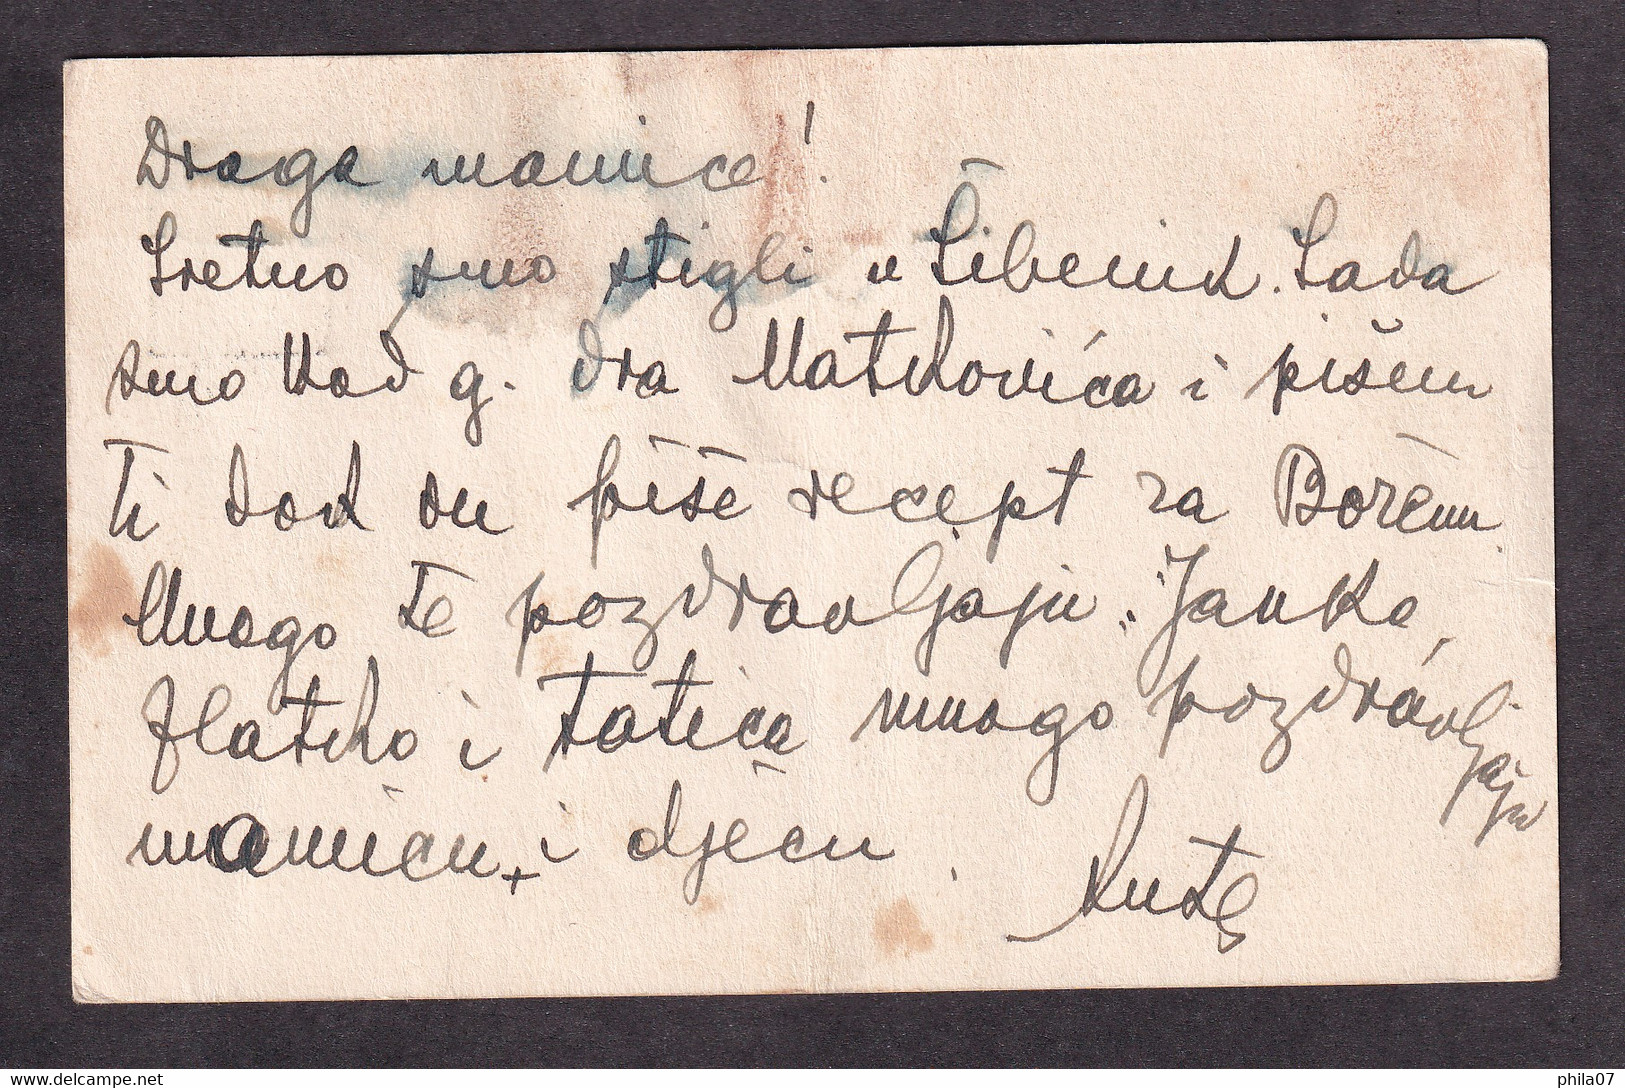 Draga mamice!
Sretno smo stigli u Šibenik. Sada
smo kod g. dra Matkovića i pišem
Ti dok on piše recept za
Mnogo te pozdravljaju Janko,
Zlatko i tatica mnogo pozdravljaju
mamicu + i djecu.
delcampe.net
phila07